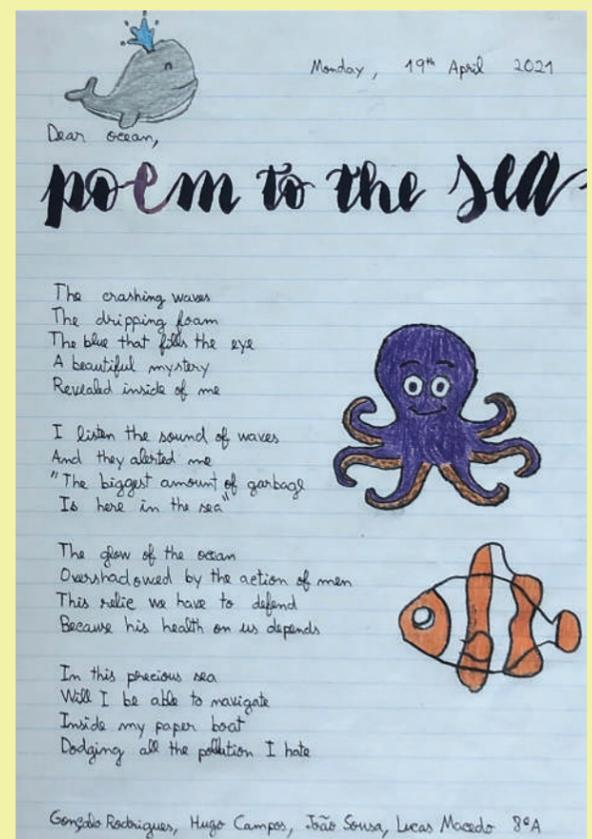 Monday, 19th April 2021
Dear ocean,
poem to the sea
The crashing waves
The dripping foam
The blue that fills the eye
A beautiful mystery
Revealed inside of me
I listen the sound of waves
And they alerted me
"The biggest amount of garbage
Is here in the sea"
The glow of the ocean
Overshadowed by the action of men
This relic we have to defend
Because his health on us depends
In this precious sea
Will I be able to navigate
Inside my paper boat
Dodging all the pollution I hate
Gonçalo Rodrigues, Hugo Campos, João Sousa, Lucas Macedo 8ºA